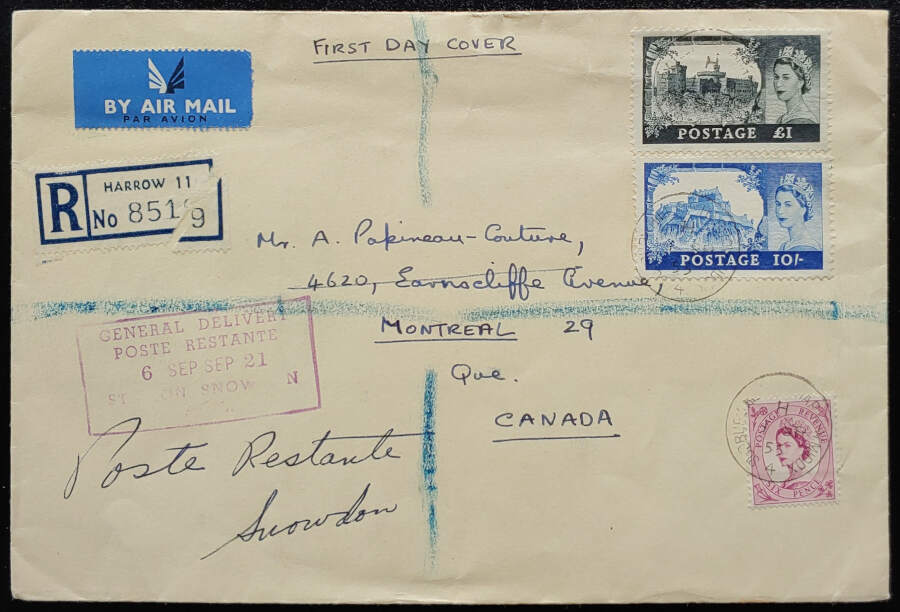 FIRST DAY COVER
BY AIR MAIL
PAR AVION
R
HARROW 11
No 851 9
POSTAGE £1
POSTAGE 10/-
Mr. A. Papineau-Couture,
4620, Earnscliffe Avenue,
MONTREAL 29
Que.
CANADA
GENERAL DELIVERY
POSTE RESTANTE
6 SEP SEP 21
ST ON SNOW N
Poste Restante
Snowdon
POSTAGE REVENUE
SIX PENCE